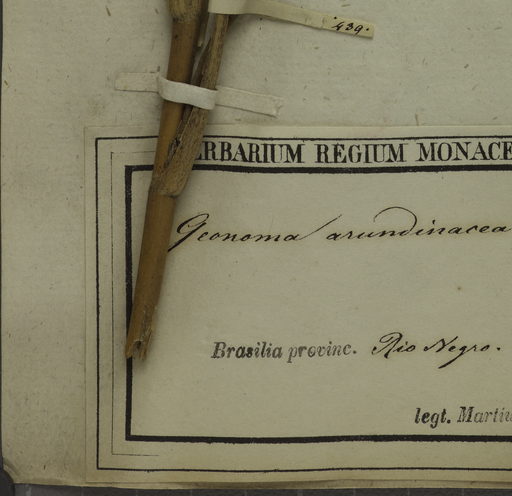 439.
ERBARIUM REGIUM MONACE
Geonoma arundinacea
Brasilia provinc. Rio Negro.
legt. Martiu